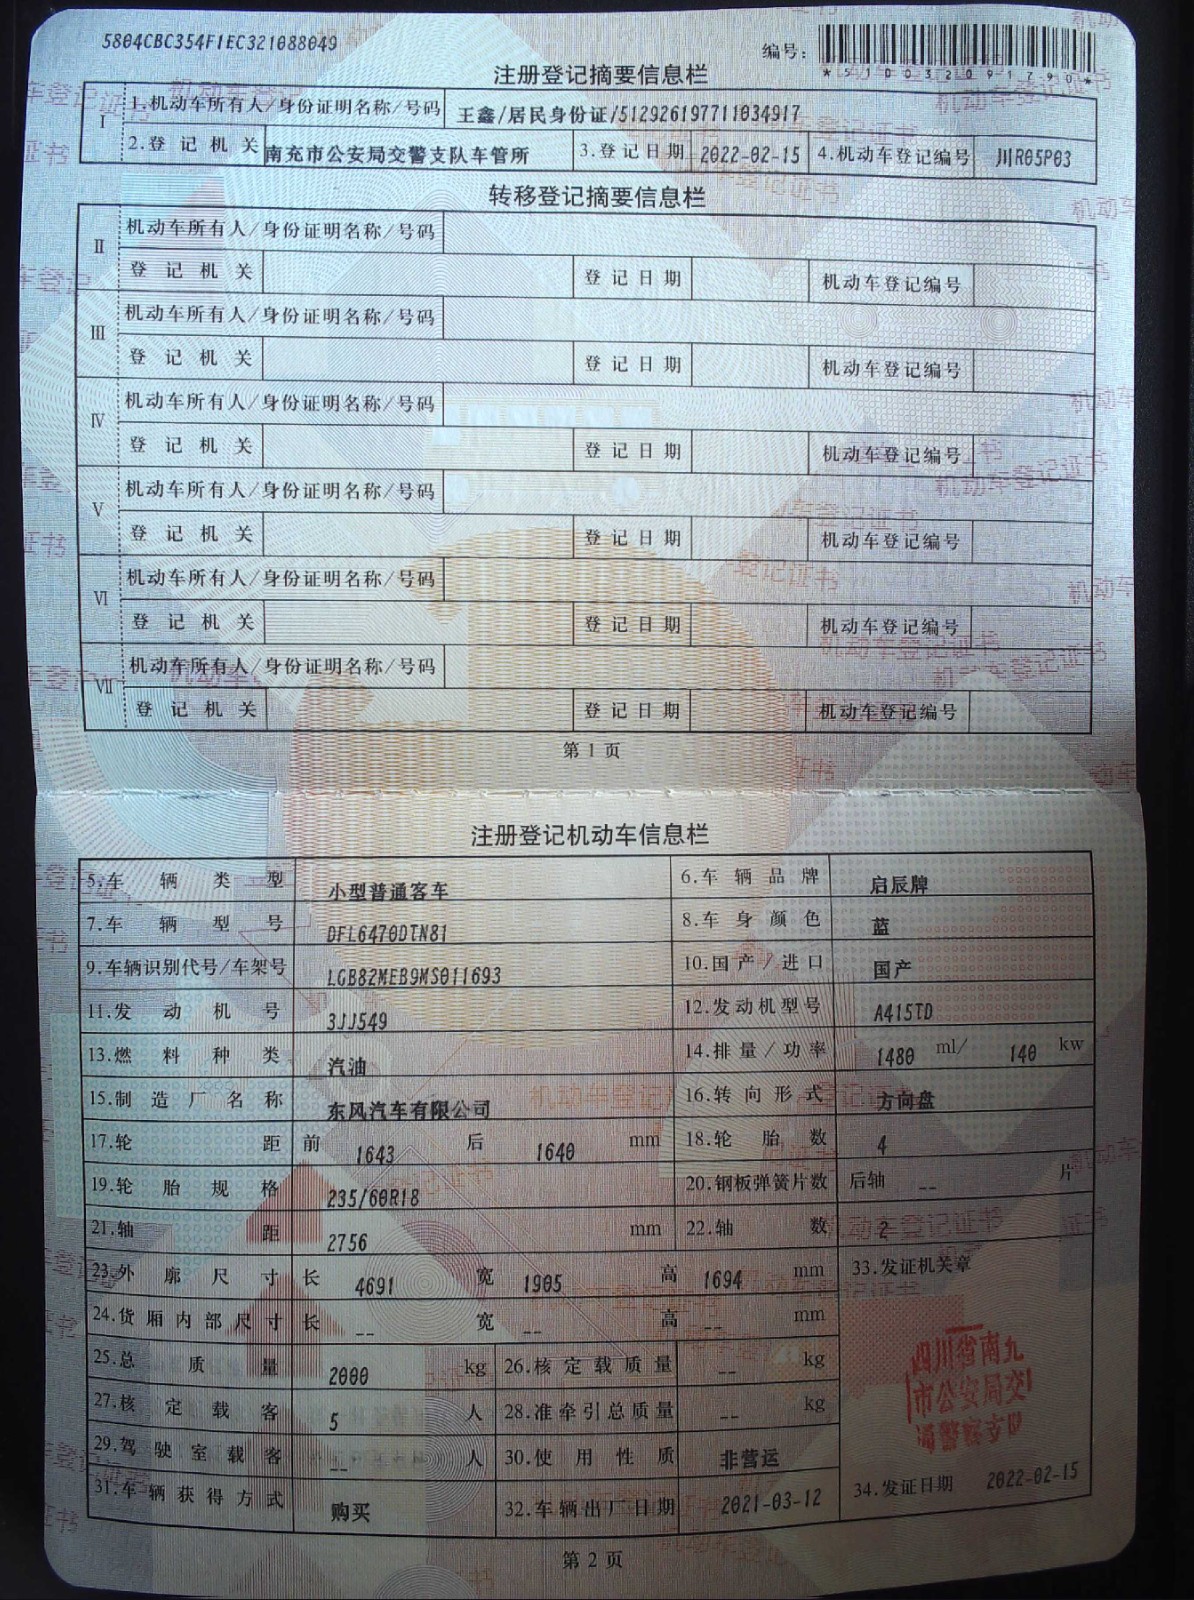 5804CBC354F1EC321088049
编号:
*510032091790*
注册登记摘要信息栏
I 1.机动车所有人/身份证明名称/号码 王鑫/居民身份证/512926197711034917
2.登记机关 南充市公安局交警支队车管所 3.登记日期 2022-02-15 4.机动车登记编号 川R05P03
转移登记摘要信息栏
II 机动车所有人/身份证明名称/号码
登记机关 登记日期 机动车登记编号
III 机动车所有人/身份证明名称/号码
登记机关 登记日期 机动车登记编号
IV 机动车所有人/身份证明名称/号码
登记机关 登记日期 机动车登记编号
V 机动车所有人/身份证明名称/号码
登记机关 登记日期 机动车登记编号
VI 机动车所有人/身份证明名称/号码
登记机关 登记日期 机动车登记编号
VII 机动车所有人/身份证明名称/号码
登记机关 登记日期 机动车登记编号
第1页
注册登记机动车信息栏
5.车辆类型 小型普通客车 6.车辆品牌 启辰牌
7.车辆型号 DFL6470DTN81 8.车身颜色 蓝
9.车辆识别代号/车架号 LGB82MEB9MS011693 10.国产/进口 国产
11.发动机号 3JJ549 12.发动机型号 A415TD
13.燃料种类 汽油 14.排量/功率 1480 ml/ 140 kw
15.制造厂名称 东风汽车有限公司 16.转向形式 方向盘
17.轮距 前 1643 后 1640 mm 18.轮胎数 4
19.轮胎规格 235/60R18 20.钢板弹簧片数 后轴 -- 片
21.轴距 2756 mm 22.轴数 2
23.外廓尺寸 长 4691 宽 1905 高 1694 mm 33.发证机关章
24.货厢内部尺寸 长 -- 宽 -- 高 -- mm
25.总质量 2000 kg 26.核定载质量 -- kg
27.核定载客 5 人 28.准牵引总质量 -- kg
29.驾驶室载客 -- 人 30.使用性质 非营运
31.车辆获得方式 购买 32.车辆出厂日期 2021-03-12 34.发证日期 2022-02-15
四川省南充
市公安局交
通警察支队
第2页